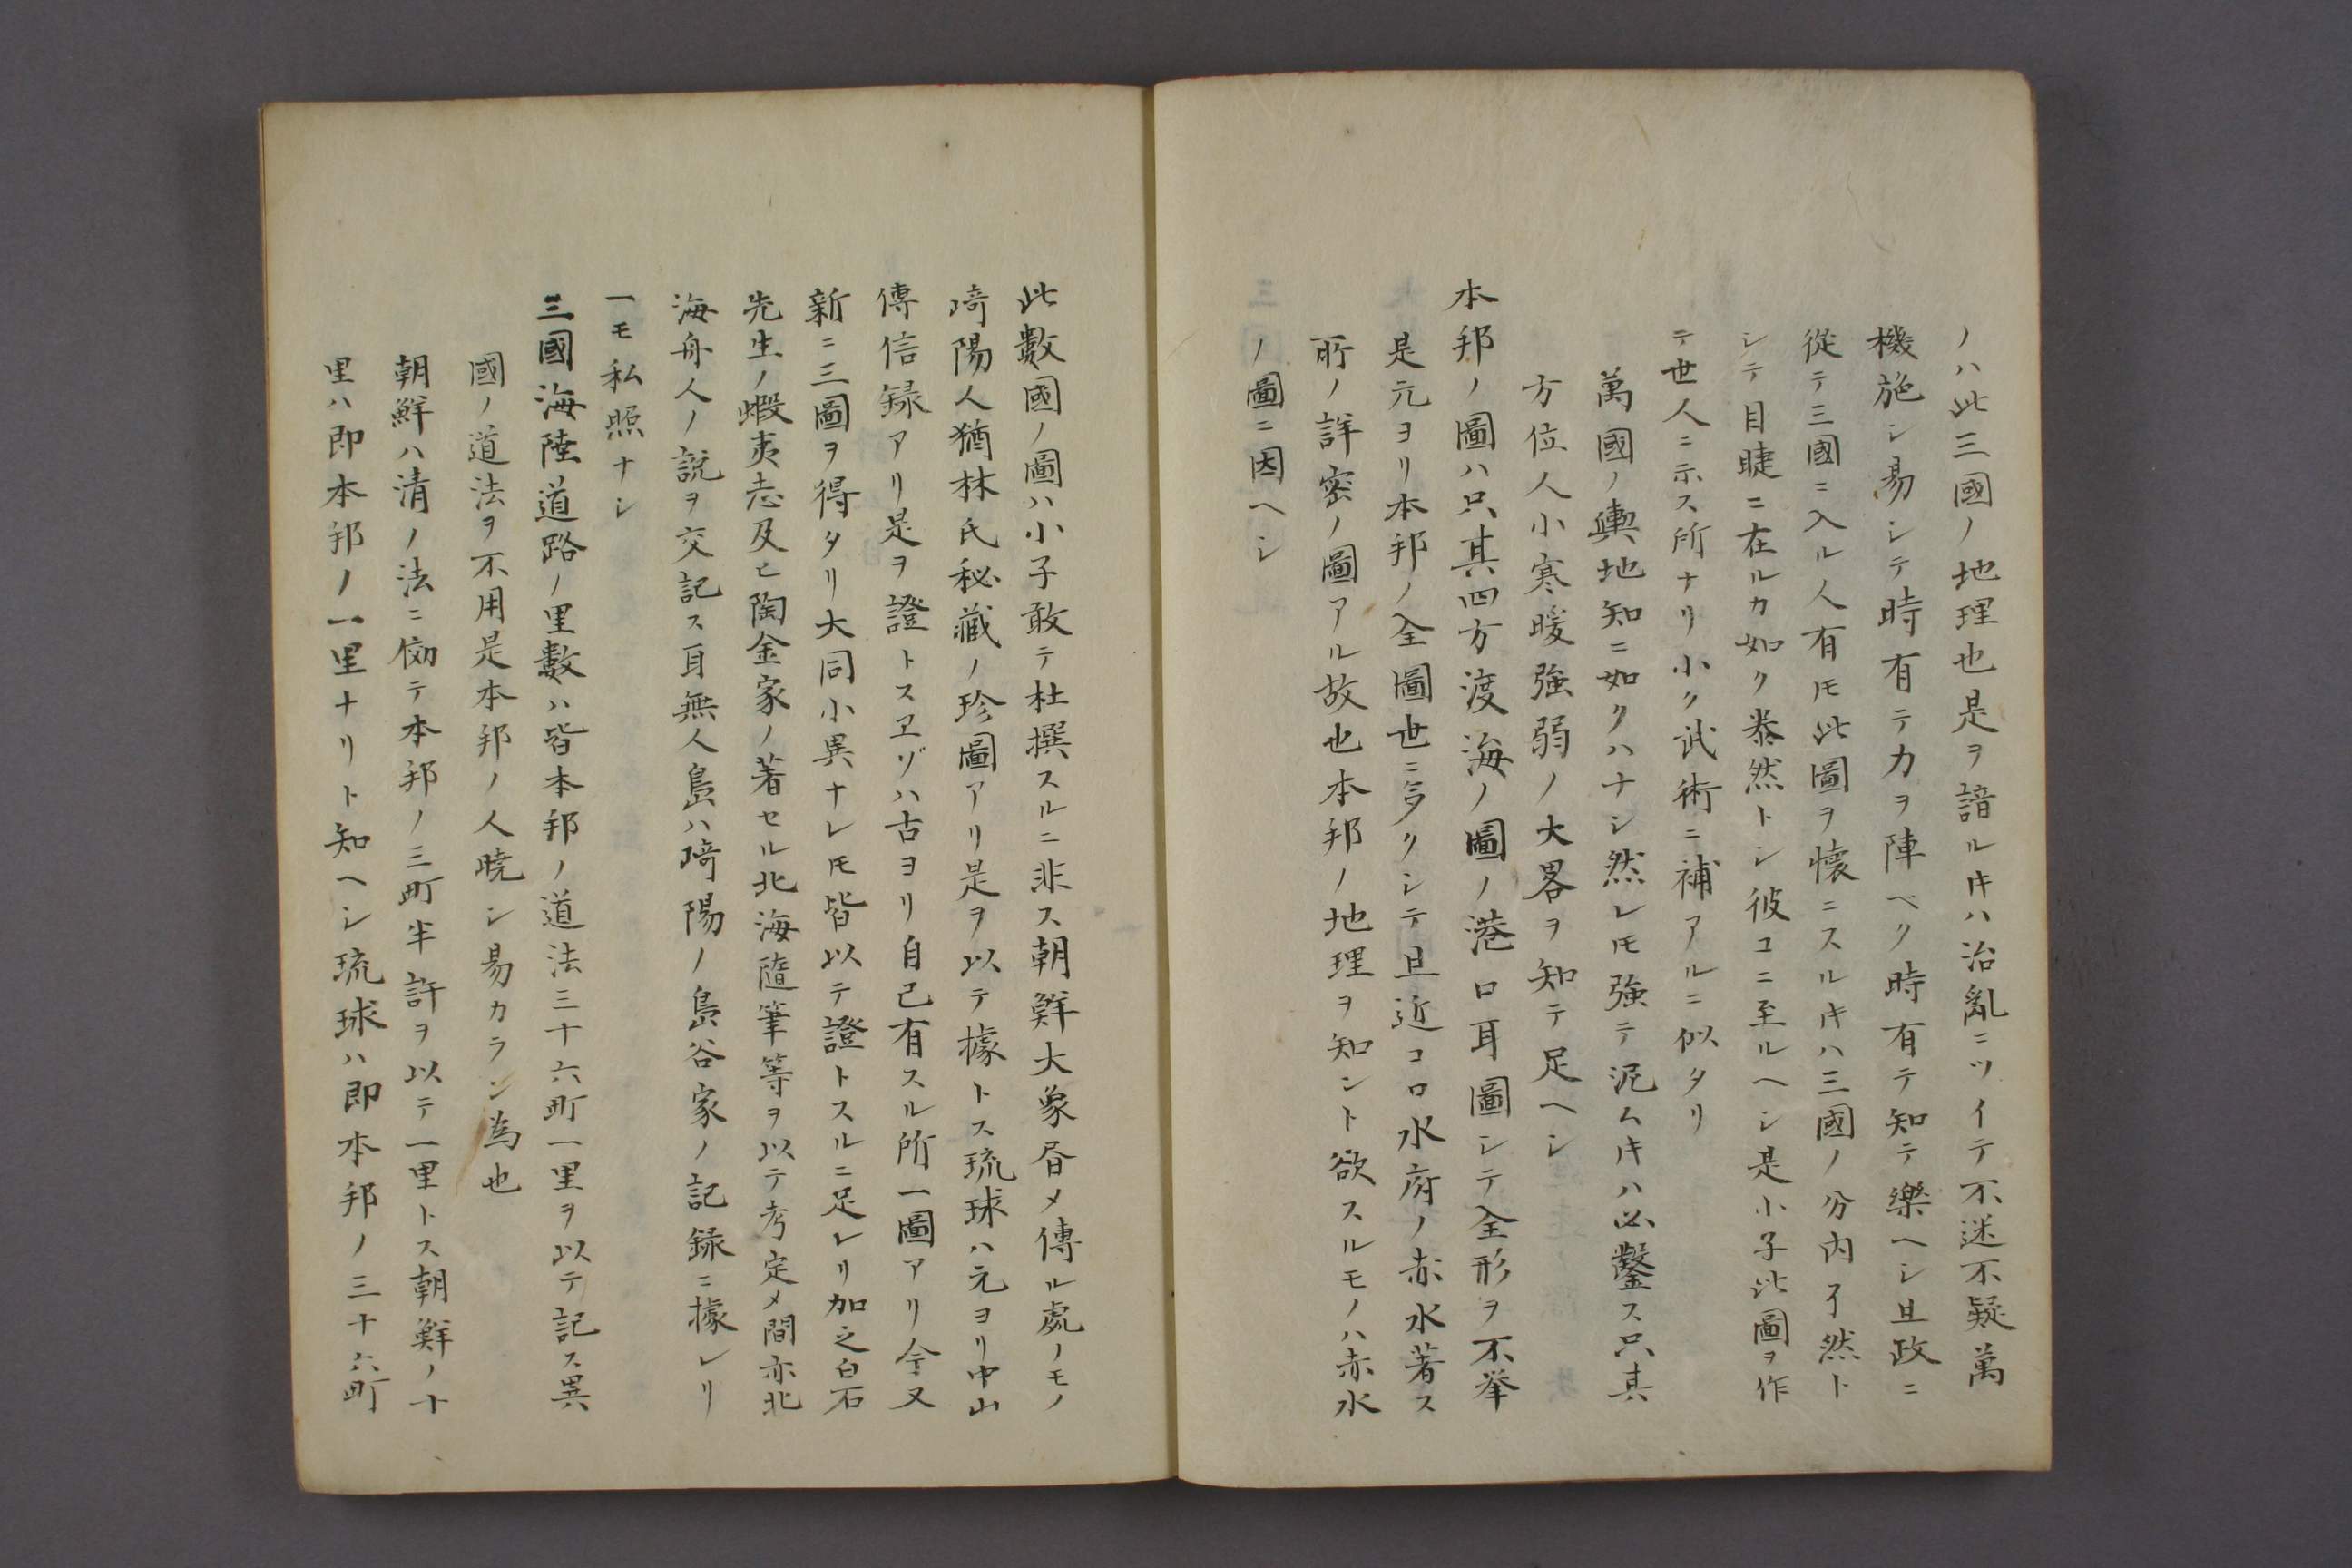 ノハ此三國ノ地理也是ヲ諳ルキハ治亂ニツイテ不迷不疑萬
機施シ易シテ時有テカヲ陣ベク時有テ知テ樂ヘシ且政ニ
従テ三國ニ入ル人有𪜈此圖ヲ懐ニスルキハ三國ノ分内了然ト
シテ目睫ニ在ルカ如ク泰然トシ彼コニ至ルヘシ是小子此圖ヲ作
テ世人ニ示ス所ナリ小ク武術ニ補アルニ似タリ
萬國ノ輿地知ニ如クハナシ然レ𪜈強テ泥ムキハ必鑿ス只其
方位人小寒暖強弱ノ大畧ヲ知テ足ヘシ
本邦ノ圖ハ只其四方渡海ノ圖ノ港口耳圖シテ全形ヲ不挙
是元ヨリ本邦ノ全圖世ニ多クシテ且近コロ水府ノ赤水著ス
所ノ詳密ノ圖アル故也本邦ノ地理ヲ知ント欲スルモノハ赤水
ノ圖ニ因ヘシ
此數國ノ圖ハ小子敢テ杜撰スルニ非ス朝鮮大象胥メ傳ル處ノモノ
﨑陽人楢林氏秘藏ノ珍圖アリ是ヲ以テ據トス琉球ハ元ヨリ中山
傳信録アリ是ヲ證トスヱゾハ古ヨリ自己有スル所一圖アリ今又
新ニ三圖ヲ得タリ大同小異ナレ𪜈皆以テ證トスルニ足レリ加之白石
先生ノ蝦夷志及ヒ陶金家ノ著セル北海隨筆等ヲ以テ考定メ間亦北
海舟人ノ説ヲ交記ス耳無人島ハ﨑陽ノ島谷家ノ記録ニ據レリ
一モ私照ナシ
三國海陸道路ノ里數ハ皆本邦ノ道法三十六町一里ヲ以テ記ス異
國ノ道法ヲ不用是本邦ノ人暁シ易カラン為也
朝鮮ハ清ノ法ニ傚テ本邦ノ三町半許ヲ以テ一里トス朝鮮ノ十
里ハ即本邦ノ一里ナリト知ヘシ琉球ハ即本邦ノ三十六町